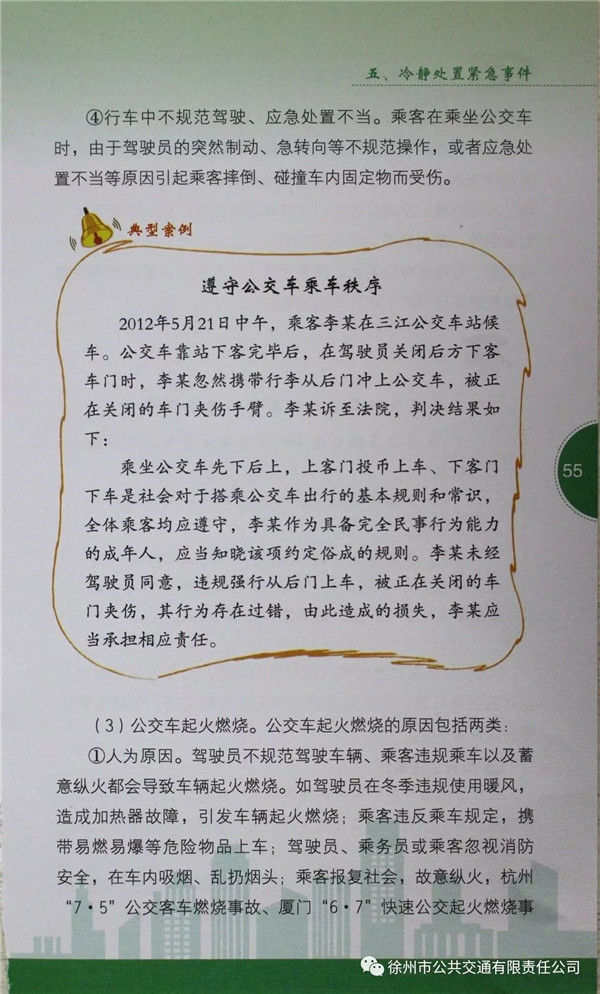 五、冷静处置紧急事件
④行车中不规范驾驶、应急处置不当。乘客在乘坐公交车
时，由于驾驶员的突然制动、急转向等不规范操作，或者应急处
置不当等原因引起乘客摔倒、碰撞车内固定物而受伤。
典型案例
遵守公交车乘车秩序
2012年5月21日中午，乘客李某在三江公交车站候
车。公交车靠站下客完毕后，在驾驶员关闭后方下客
车门时，李某忽然携带行李从后门冲上公交车，被正
在关闭的车门夹伤手臂。李某诉至法院，判决结果如
下：
乘坐公交车先下后上，上客门投币上车、下客门
下车是社会对于搭乘公交车出行的基本规则和常识，
全体乘客均应遵守，李某作为具备完全民事行为能力
的成年人，应当知晓该项约定俗成的规则。李某未经
驾驶员同意，违规强行从后门上车，被正在关闭的车
门夹伤，其行为存在过错，由此造成的损失，李某应
当承担相应责任。
55
（3）公交车起火燃烧。公交车起火燃烧的原因包括两类：
①人为原因。驾驶员不规范驾驶车辆、乘客违规乘车以及蓄
意纵火都会导致车辆起火燃烧。如驾驶员在冬季违规使用暖风，
造成加热器故障，引发车辆起火燃烧；乘客违反乘车规定，携
带易燃易爆等危险物品上车；驾驶员、乘务员或乘客忽视消防
安全，在车内吸烟、乱扔烟头；乘客报复社会，故意纵火，杭州
“7·5”公交客车燃烧事故、厦门“6·7”快速公交起火燃烧事
徐州市公共交通有限责任公司